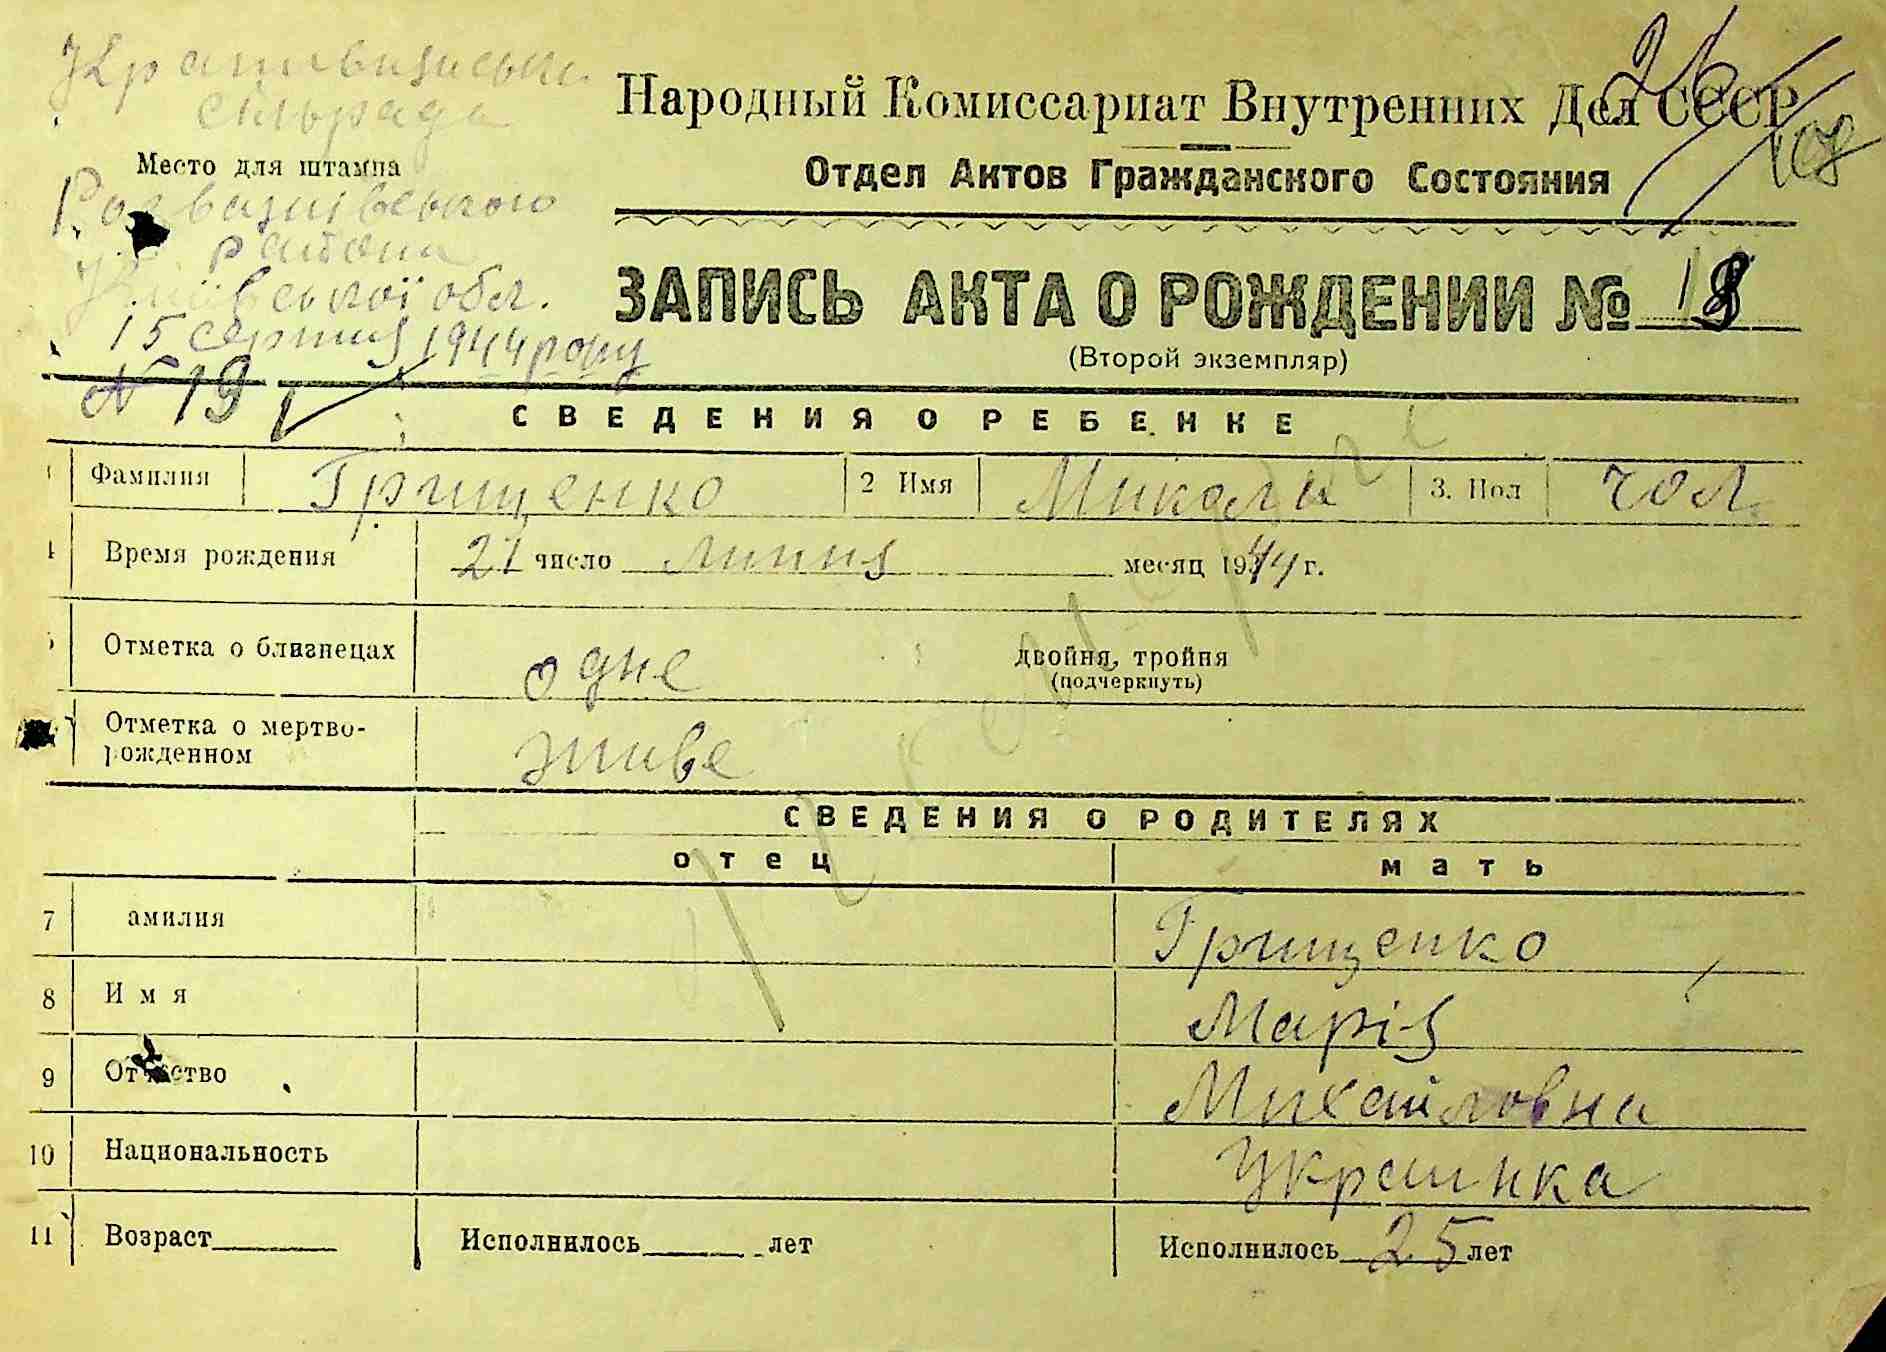 сільрада
Место для штампа
Розважівського
району
Київської обл.
15 серпня 1944 року
N 19
26
108
Народный Комиссариат Внутренних Дел СССР
Отдел Актов Гражданского Состояния
ЗАПИСЬ АКТА О РОЖДЕНИИ № 18
(Второй экземпляр)
СВЕДЕНИЯ О РЕБЕНКЕ
Фамилия Грищенко 2 Имя Микола 3. Пол чол.
Время рождения 21 число липня месяц 1944 г.
Отметка о близнецах одне двойня, тройня
(подчеркнуть)
Отметка о мертво-
рожденном живе
СВЕДЕНИЯ О РОДИТЕЛЯХ
отец мать
7 амилия Грищенко
8 Имя Марія
9 От ство Михайловна
10 Национальность Украинка
11 Возраст Исполнилось лет Исполнилось 25 лет